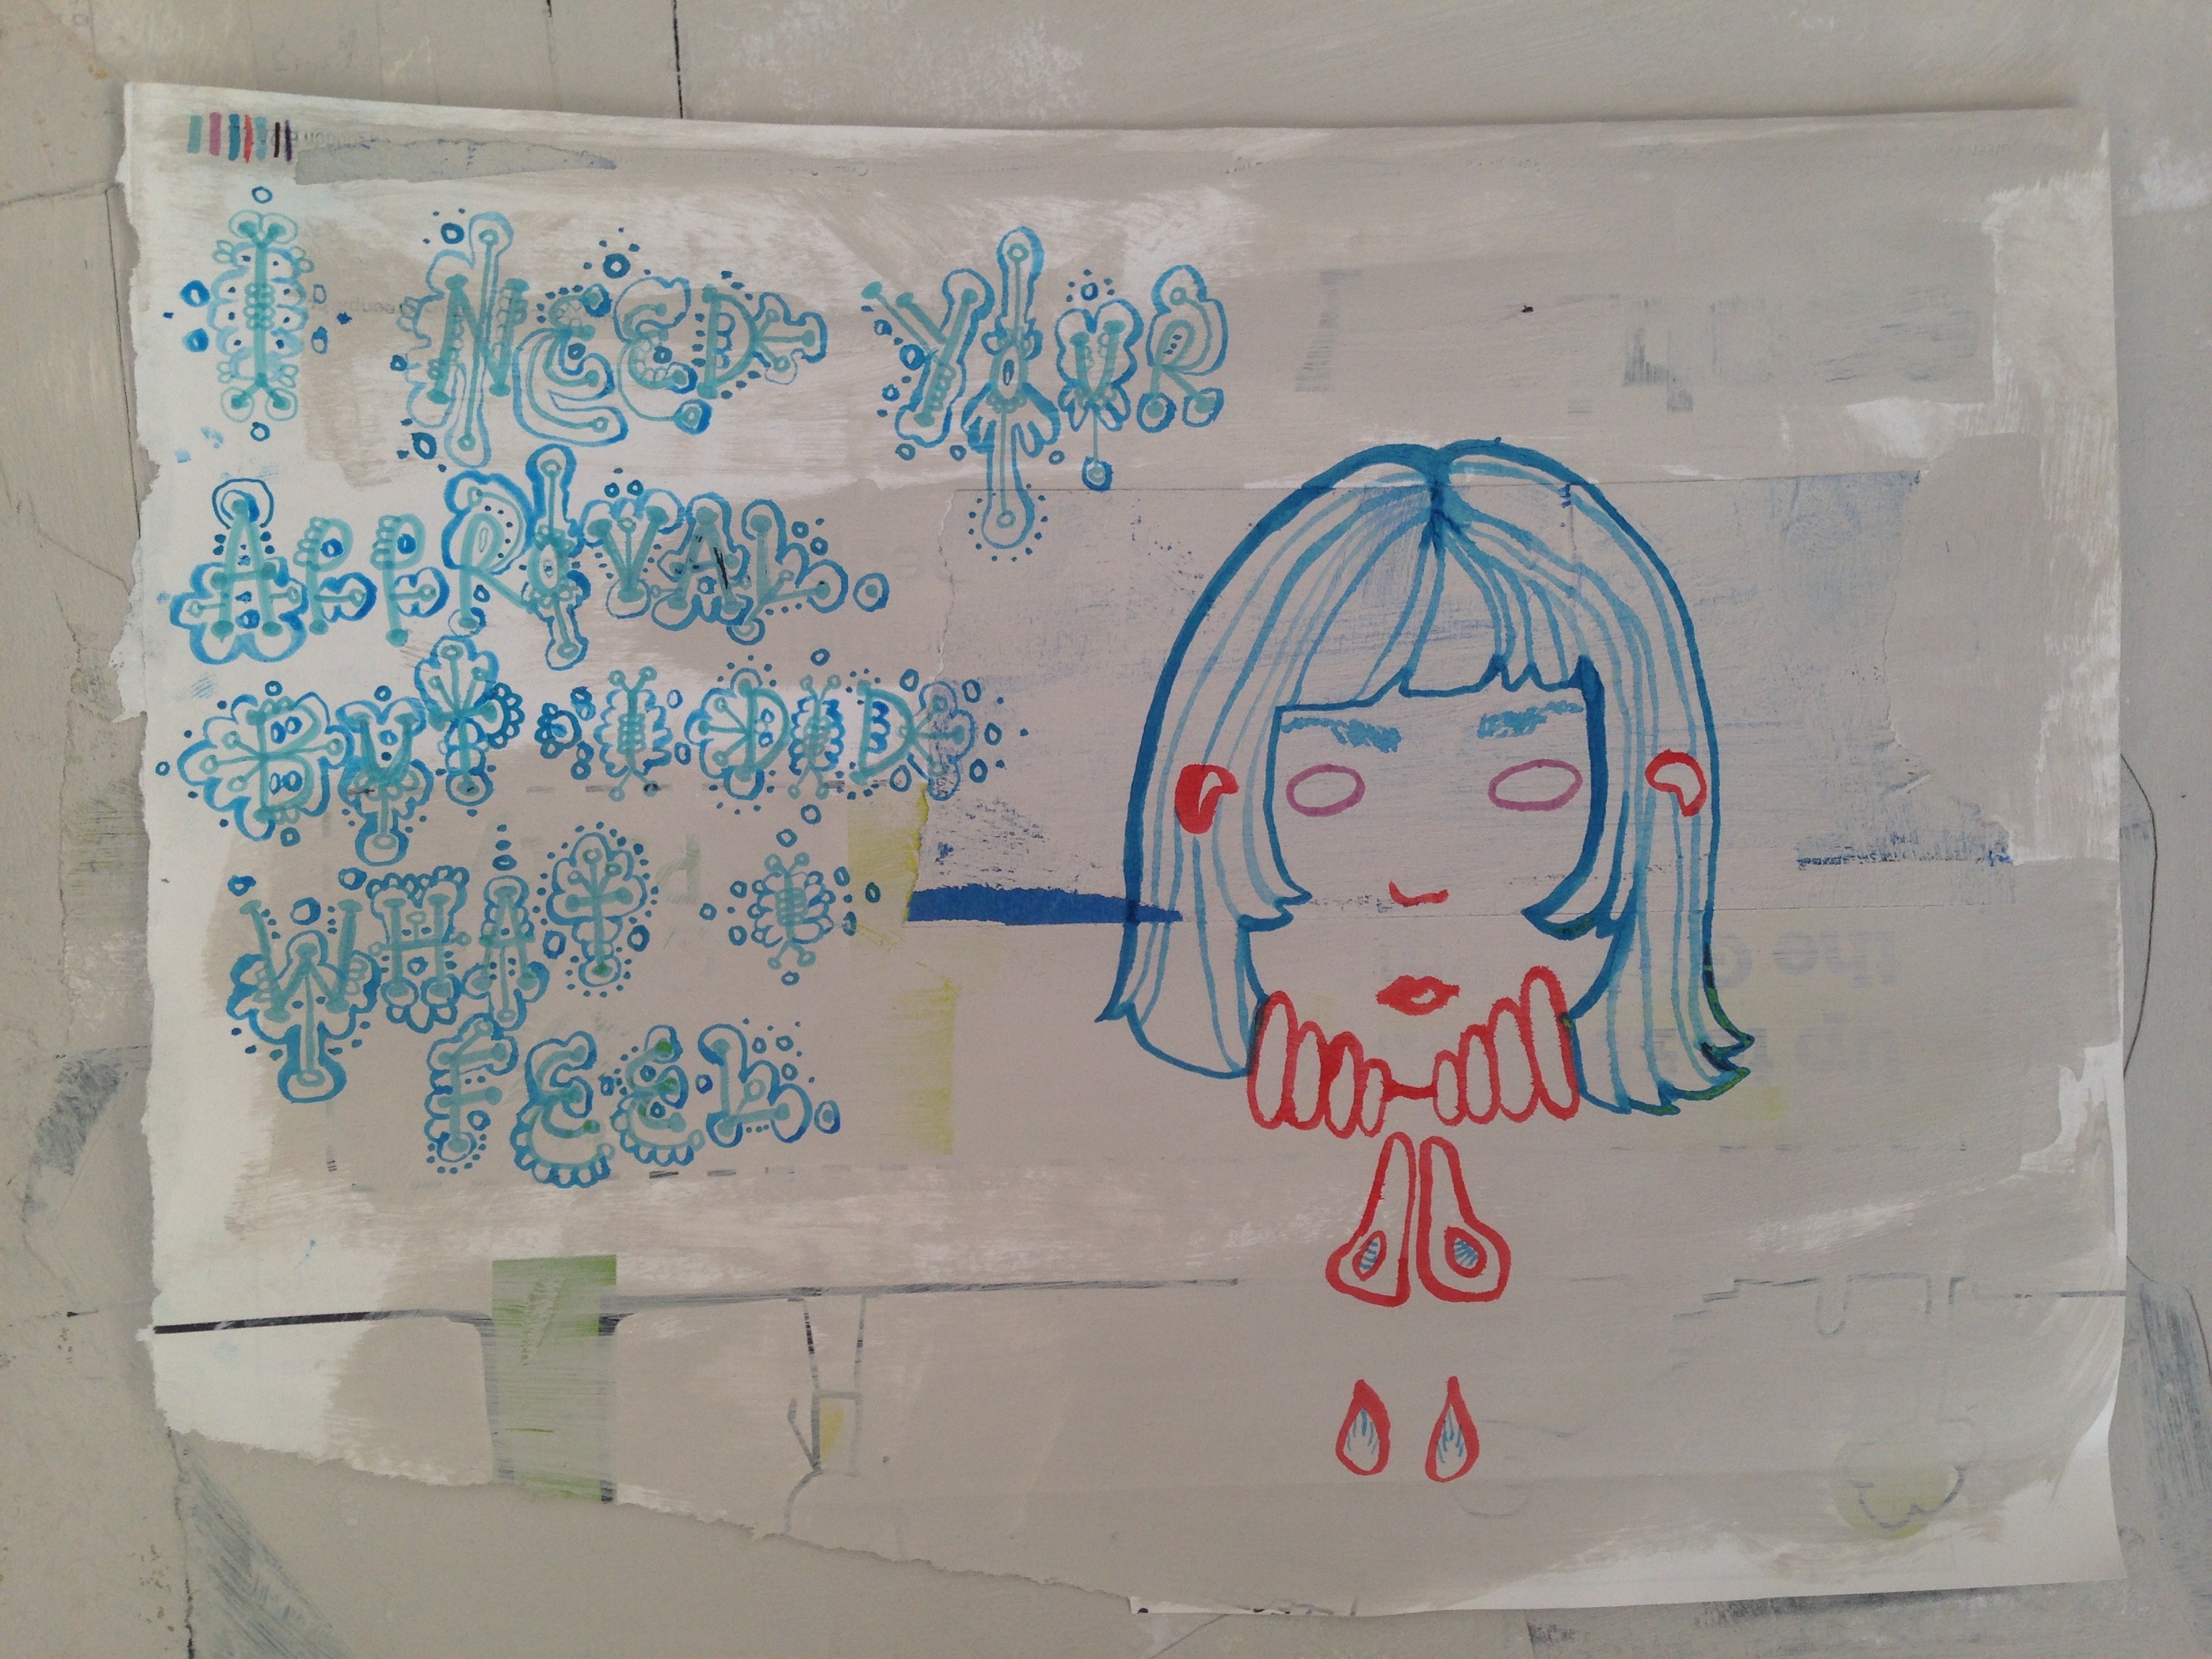 I NEED YOUR
APPROVAL
BUT I DID
WHAT I
FEEL